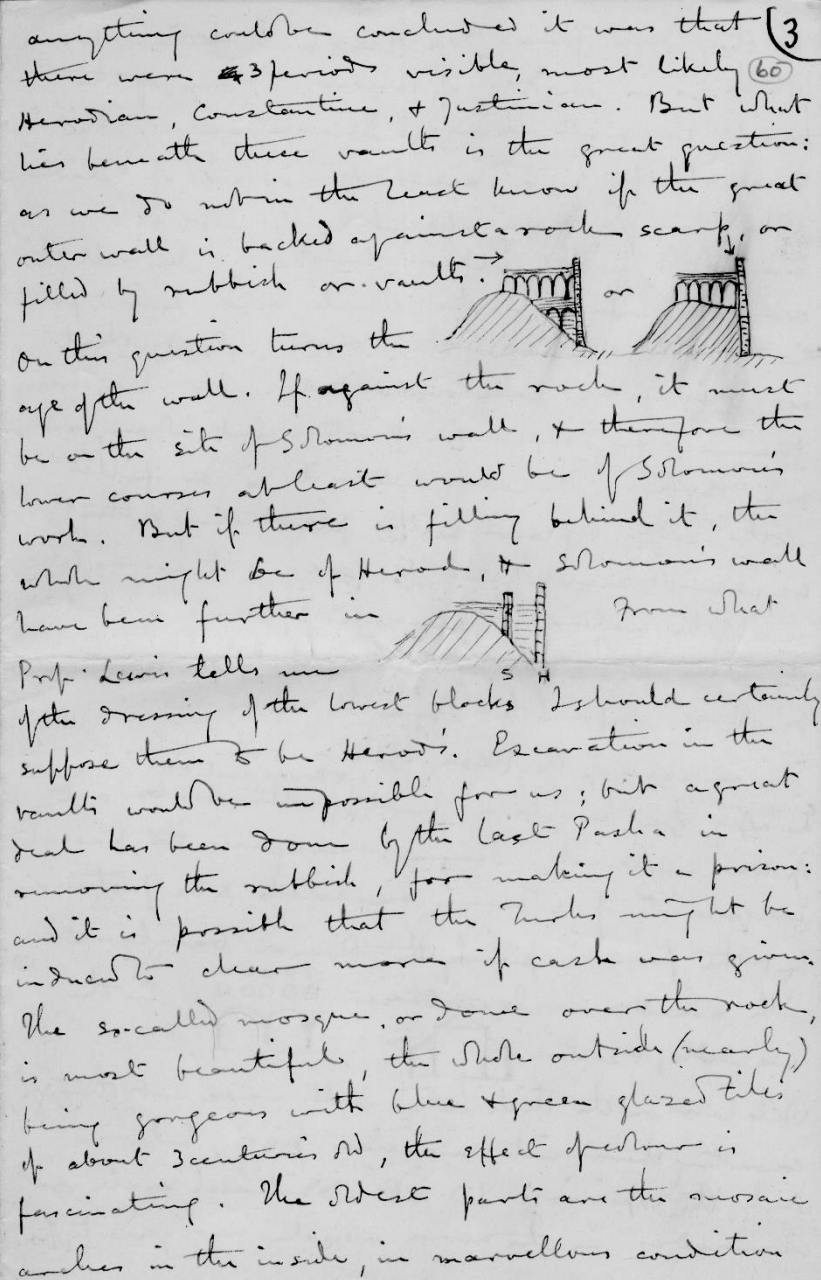 anything could be concluded it was that (3
there were 3 periods visible, most likely 60
Herodian, Constantine, & Justinian. But what
lies beneath these vaults is the great question:
as we do not in the least know if the great
outer wall is backed against a rock scarp, or
filled by rubbish or vaults. → or
On this question turns the
age of the wall. If against the rock, it must
be on the site of Solomon's wall, & therefore the
lower courses at least would be of Solomon's
work. But if there is filling behind it, the
whole might be of Herod, & Solomon's wall
have been further in From what
S H
Prof. Lewis tells me
of the dressing of the lowest blocks I should certainly
suppose them to be Herod's. Excavation in the
vaults would be impossible for us; but a great
deal has been done by the last Pasha in
removing the rubbish, for making it a prison:
and it is possible that the Turks might be
induced to clear more if cash was given.
The so-called mosque, or dome over the rock,
is most beautiful, the whole outside (nearly)
being gorgeous with blue & green glazed tiles
of about 3 centuries old, the effect of colour is
fascinating. The oldest parts are the mosaic
arches in the inside, in marvellous condition